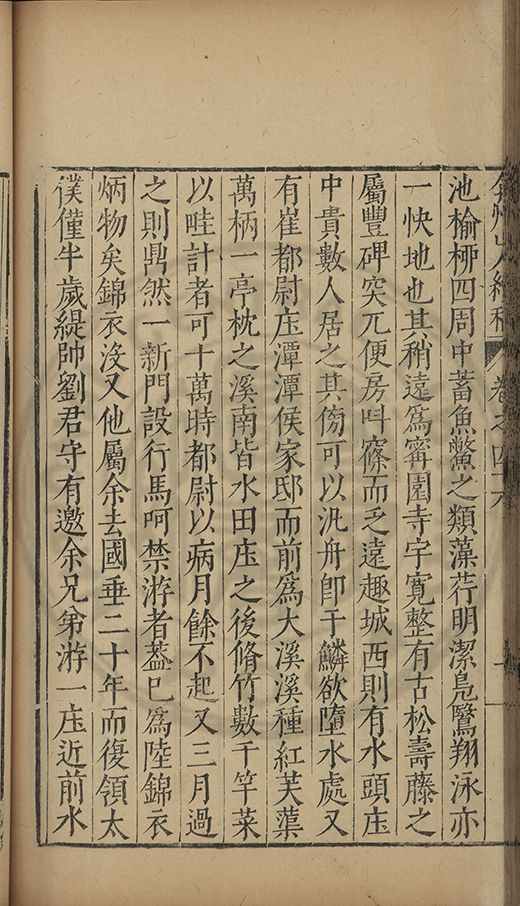 弇州山人續稿 卷之四十六
池榆栁四周中蓄魚鱉之類藻荇明潔鳬鷖翔泳亦
一快地也其稍遠爲寗園寺宇寛整有古松壽藤之
屬豐碑突兀便房呌窱而乏遠趣城西則有水頭庄
中貴數人居之其傍可以汎舟卽于鱗欲墮水處又
有崔都尉庄潭潭侯家邸而前爲大溪溪種紅芙蕖
萬柄一亭枕之溪南皆水田庄之後脩竹數千竿菜
以畦計者可十萬時都尉以病月餘不起又三月過
之則鼎然一新門設行馬呵禁游者葢已爲陸錦衣
炳物矣錦衣沒又他屬余去國垂二十年而復領太
僕僅半歲緹帥劉君守有邀余兄弟游一庄近前水